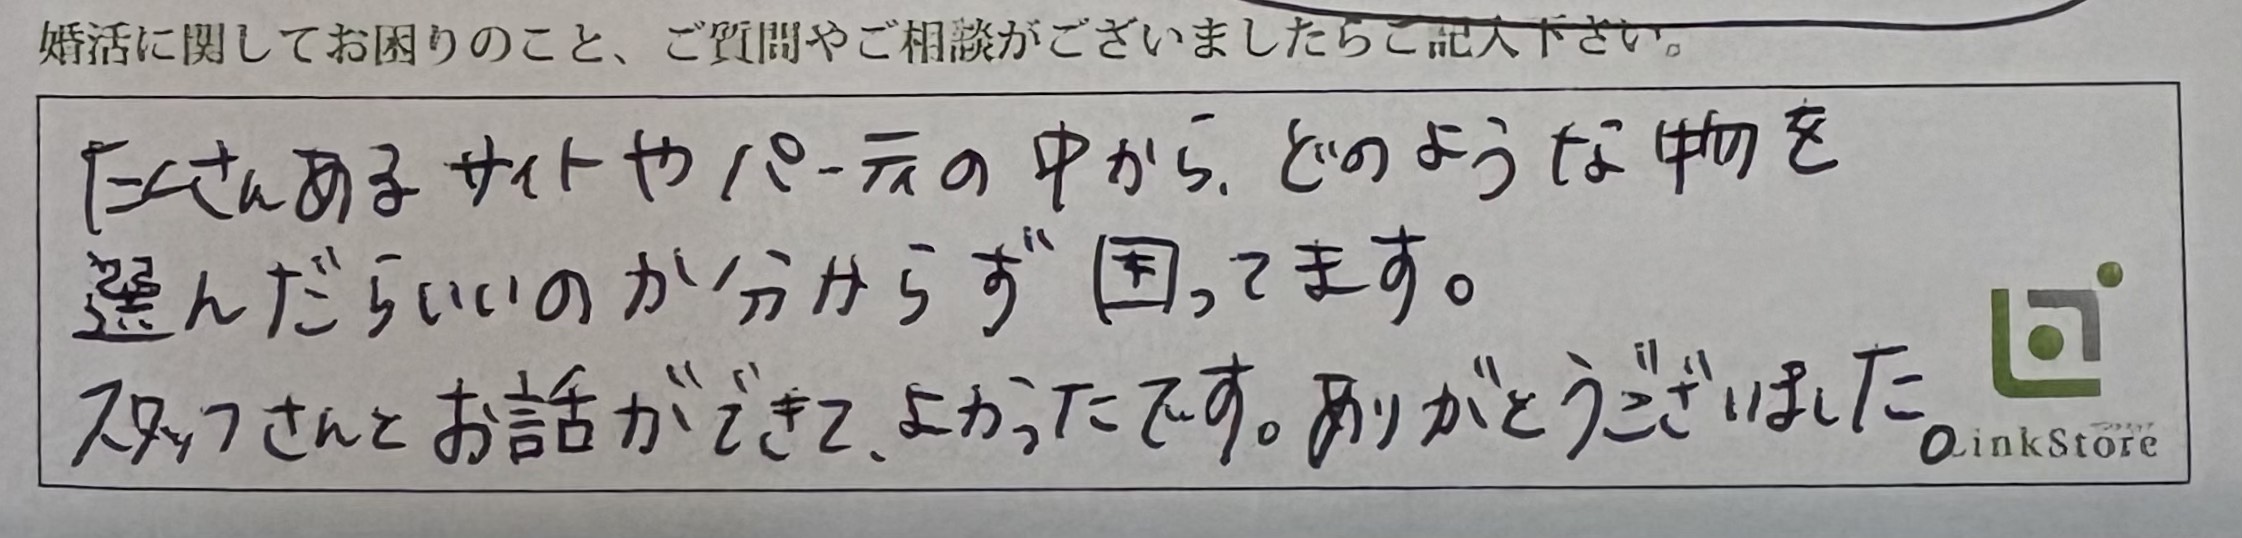 婚活に関してお困りのこと、ご質問やご相談がございましたらご記入下さい。
たくさんあるサイトやパーティの中から、どのような物を
選んだらいいのか分からず困ってます。
スタッフさんとお話ができて、よかったです。ありがとうございました。
LinkStore